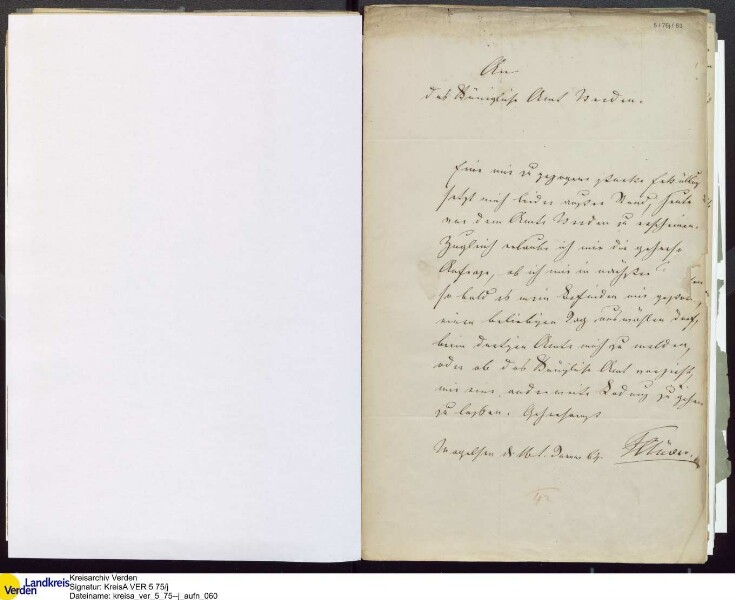 An
das Königliche Amt Verden.
Eine mir zugezogene starke Erkältung
setzt mich leider außer Stand, heute
vor dem Amte Verden zu erscheinen.
Zugleich erlaube ich mir die gehors.
Anfrage, ob ich mir in nächster
so bald es mein Befinden mir gestattet,
einen beliebigen Tag auswählen darf,
beim dortigen Amte mich zu melden,
oder ob das Königliche Amt vorzieht,
mir eine anderweite Ladung zugehen
zu lassen. Gehorsamst
Magelsen d. 16t. 64.
Kreisarchiv Verden
Signatur: KreisA VER 5.75/j
Dateiname: kreisa_ver_5_75--j_aufn_060
Landkreis
Verden